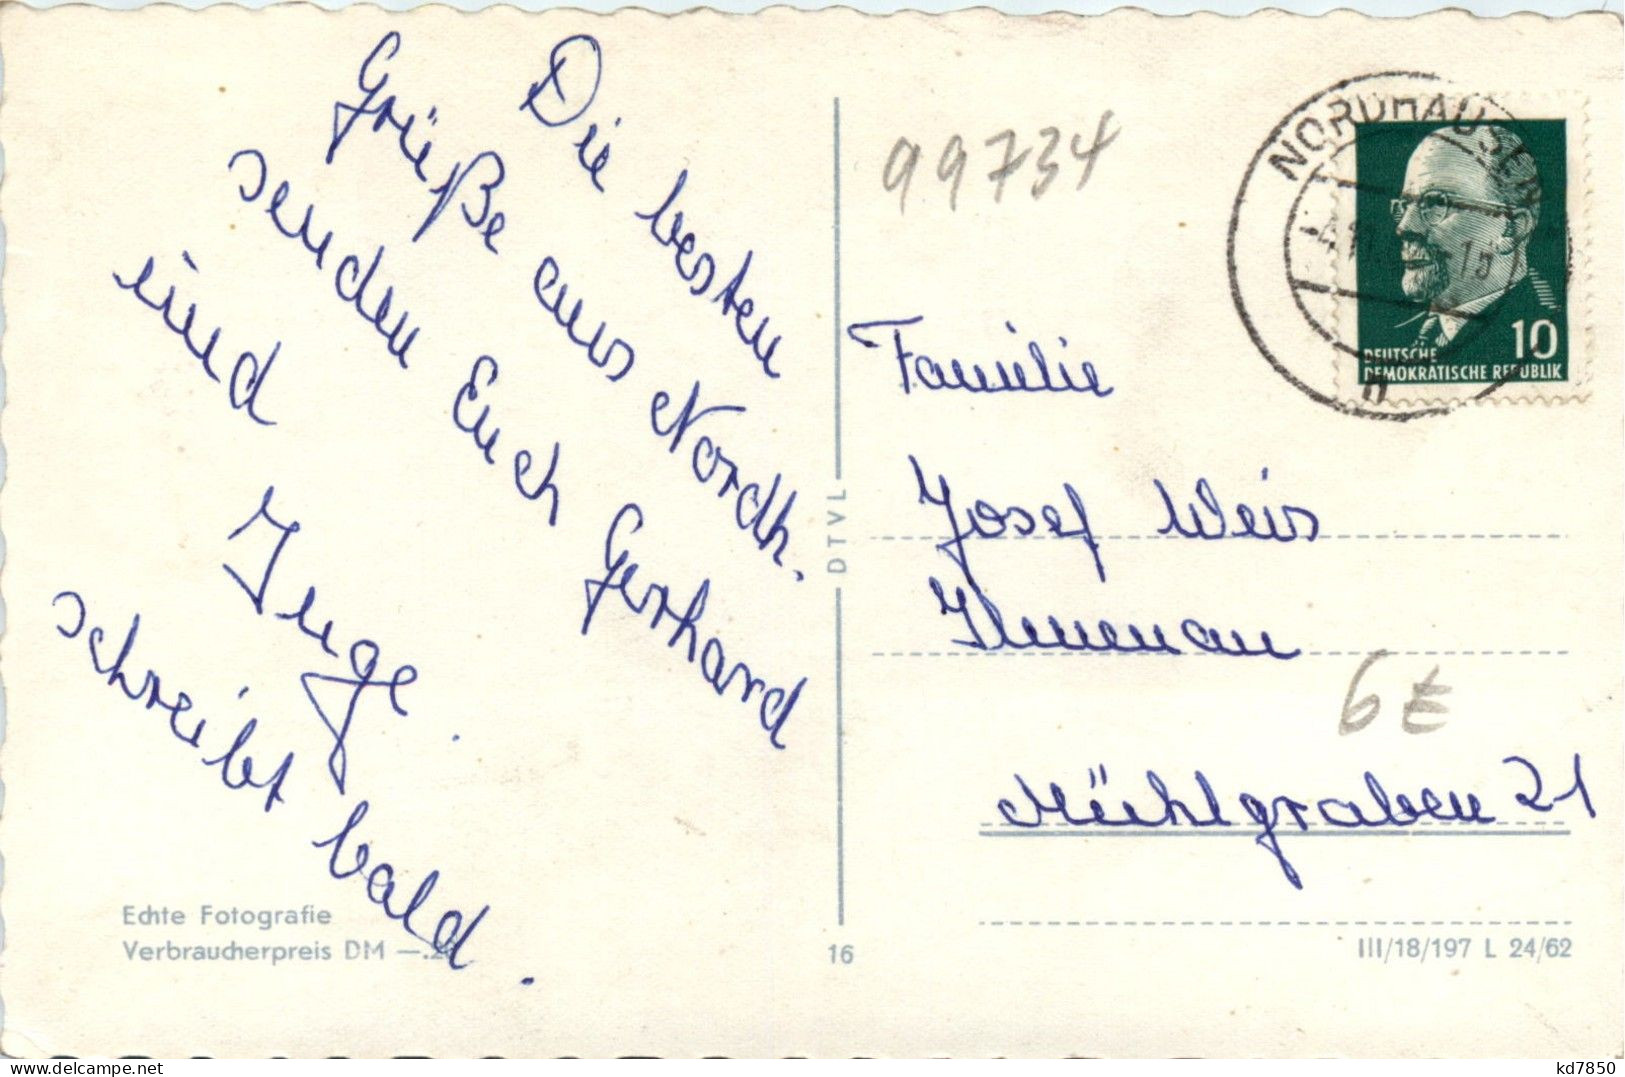 Die besten
Grüße aus Nordh.
senden Euch Gerhard
und
Inge.
schreibt bald.
Echte Fotografie
Verbraucherpreis DM —.2
DTVL
16
99734
NORDHAUSEN
15
n
10
DEUTSCHE
DEMOKRATISCHE REPUBLIK
Familie
Josef Weis
Ilmenau
6 €
Mühlgraben 21
III/18/197 L 24/62
kd7850